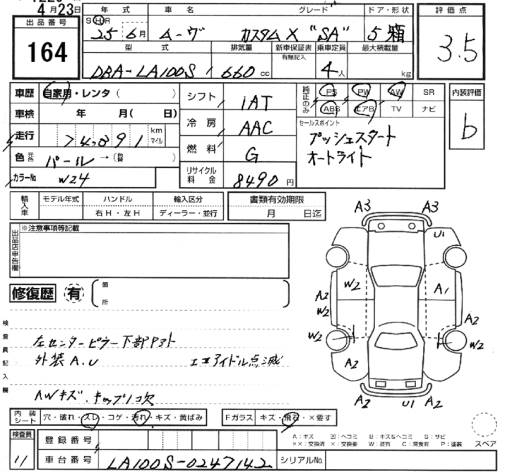 4月23日
出品番号
164
年式 車名 グレード ドア・形状
SH 25 6月 ムーヴ カスタムX "SA" 5 箱
型式 排気量 新車保証書 有無記入 乗車定員 最大積載量
DBA-LA100S 660 cc 4人 kg
評価点
3.5
車歴 自家用・レンタ( )
車検 年 月( 日)
走行 74891 km マイル
色 パール→
カラーNo W24
シフト 1AT
冷房 AAC
燃料 G
リサイクル料金 8490円
純正のみ
PS PW AW SR
ABS エアB TV ナビ
セールスポイント
プッシュスタート
オートライト
内装評価
b
輸入車 モデル年式 ハンドル 輸入区分
右H・左H ディーラー・並行
書類有効期限
月 日迄
出品店申告欄
※注意事項等記載
修復歴 有 箇所
検査員記入欄
左センターピラー下部
外装A.U エコアイドル点滅
AWキズ
A3 A3
U1
W2 W2 A1
A2 W2 A2
W2 W2
A2 U1 A2
内装シート 穴・破れ・スレ・コゲ・汚れ・キズ・黄ばみ
Fガラス キズ・飛石・×要す
スペア
検査員
11
登録番号
車台番号 LA100S-0247142
シリアルNo
A:キズ
P:塗装